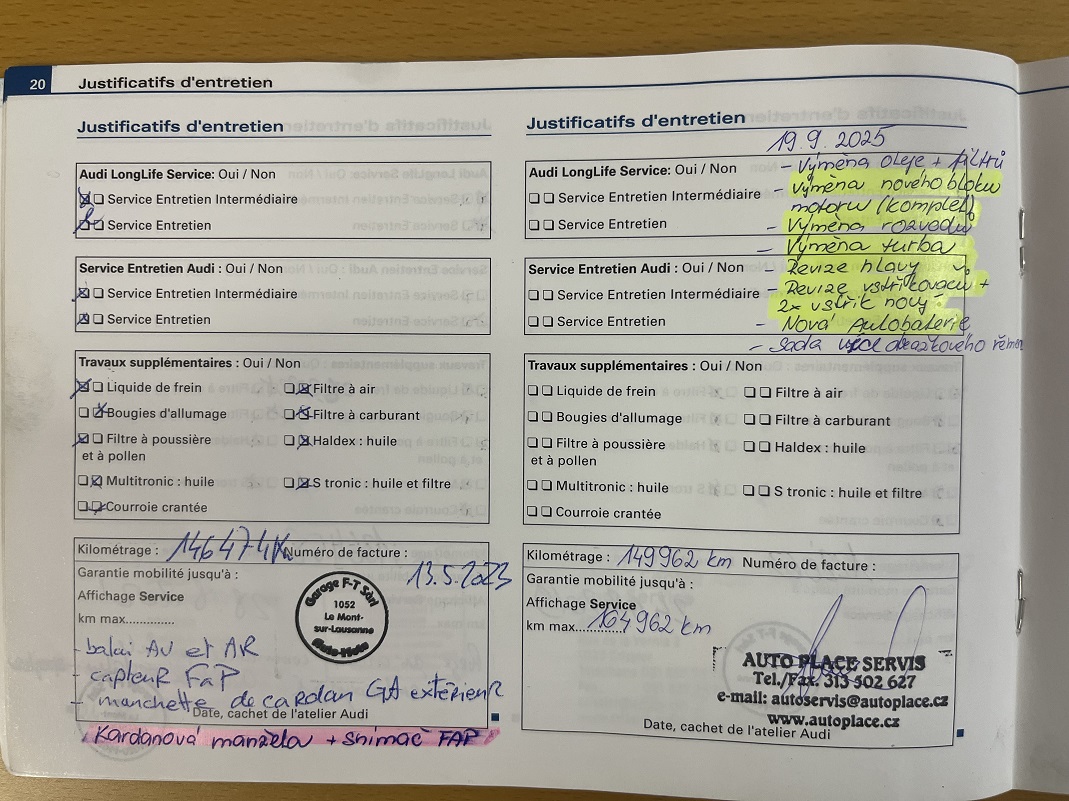 20 Justificatifs d'entretien
Justificatifs d'entretien
Audi LongLife Service: Oui / Non
Service Entretien Intermédiaire
Service Entretien
Service Entretien Audi : Oui / Non
Service Entretien Intermédiaire
Service Entretien
Travaux supplémentaires : Oui / Non
Liquide de frein
Filtre à air
Bougies d'allumage
Filtre à carburant
Filtre à poussière
et à pollen
Haldex : huile
Multitronic : huile
S tronic : huile et filtre
Courroie crantée
Kilométrage : 146474K Numéro de facture :
Garantie mobilité jusqu'à : 13.5.2023
Affichage Service
km max.............
Garage F-T Sàrl
1052
Le Mont-
sur-Lausanne
- balai AV et AR
- capteur FaP
- manchette de cardan GA extérieur
Date, cachet de l'atelier Audi
Kardanová manžeta + Snímač FAP
Justificatifs d'entretien
19. 9. 2025
- Výměna oleje + filtrů
- Výměna nového bloku
motoru (komplet)
- Výměna rozvodů
- Výměna turba
- Revize hlavy
- Revize vstřikovačů +
2x vstřik nový
- Nová Autobaterie
- Sada drážkového řemen
Audi LongLife Service: Oui / Non
Service Entretien Intermédiaire
Service Entretien
Service Entretien Audi : Oui / Non
Service Entretien Intermédiaire
Service Entretien
Travaux supplémentaires : Oui / Non
Liquide de frein
Filtre à air
Bougies d'allumage
Filtre à carburant
Filtre à poussière
et à pollen
Haldex : huile
Multitronic : huile
S tronic : huile et filtre
Courroie crantée
Kilométrage : 149962 km Numéro de facture :
Garantie mobilité jusqu'à :
Affichage Service
km max............ 164 962 km
AUTO PLACE SERVIS
Tel./Fax. 313 502 627
e-mail: autoservis@autoplace.cz
www.autoplace.cz
Date, cachet de l'atelier Audi